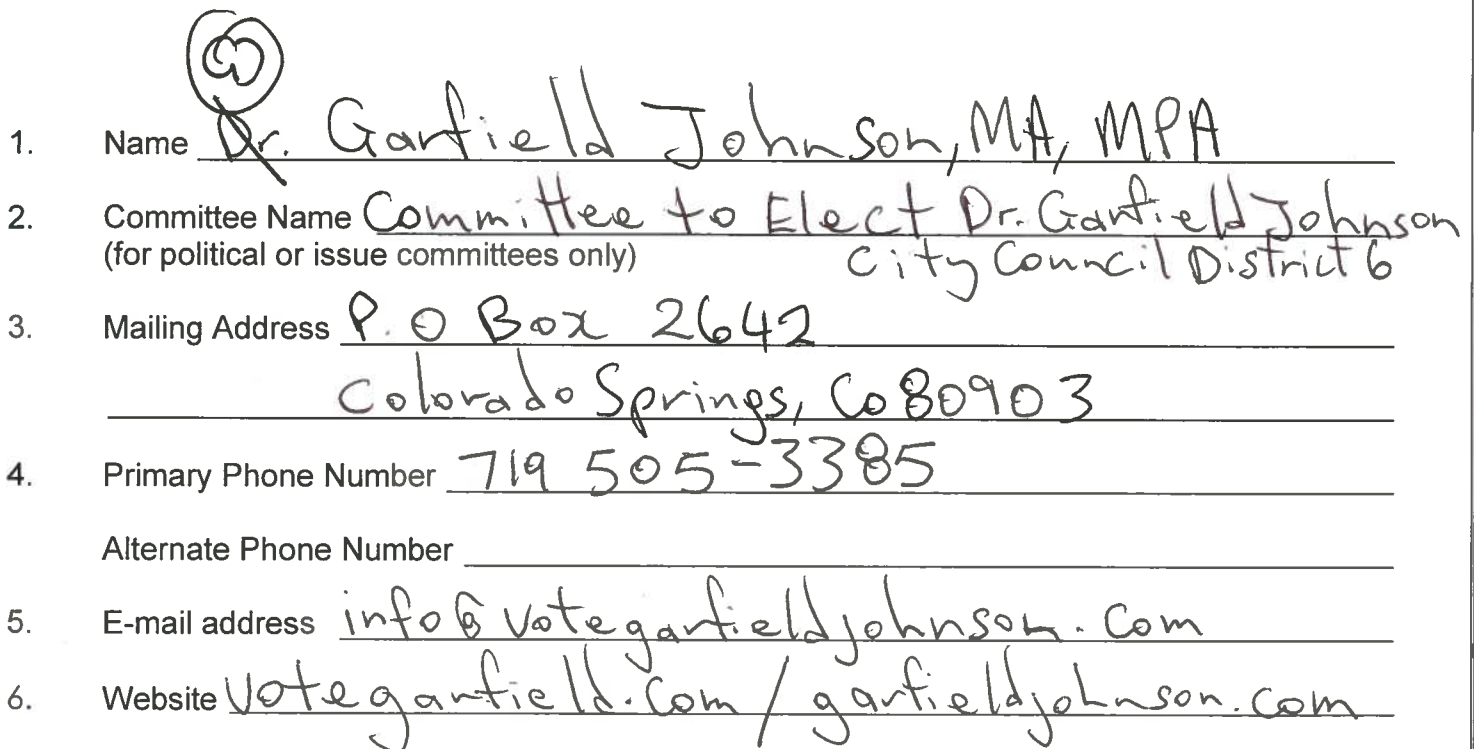 1. Name Dr. Garfield Johnson, MA, MPA
2. Committee Name Committee to Elect Dr. Garfield Johnson
(for political or issue committees only) City Council District 6
3. Mailing Address P.O Box 2642
Colorado Springs, Co 80903
4. Primary Phone Number 719 505-3385
Alternate Phone Number
5. E-mail address info@votegarfieldjohnson.com
6. Website Votegarfield.com / garfieldjohnson.com